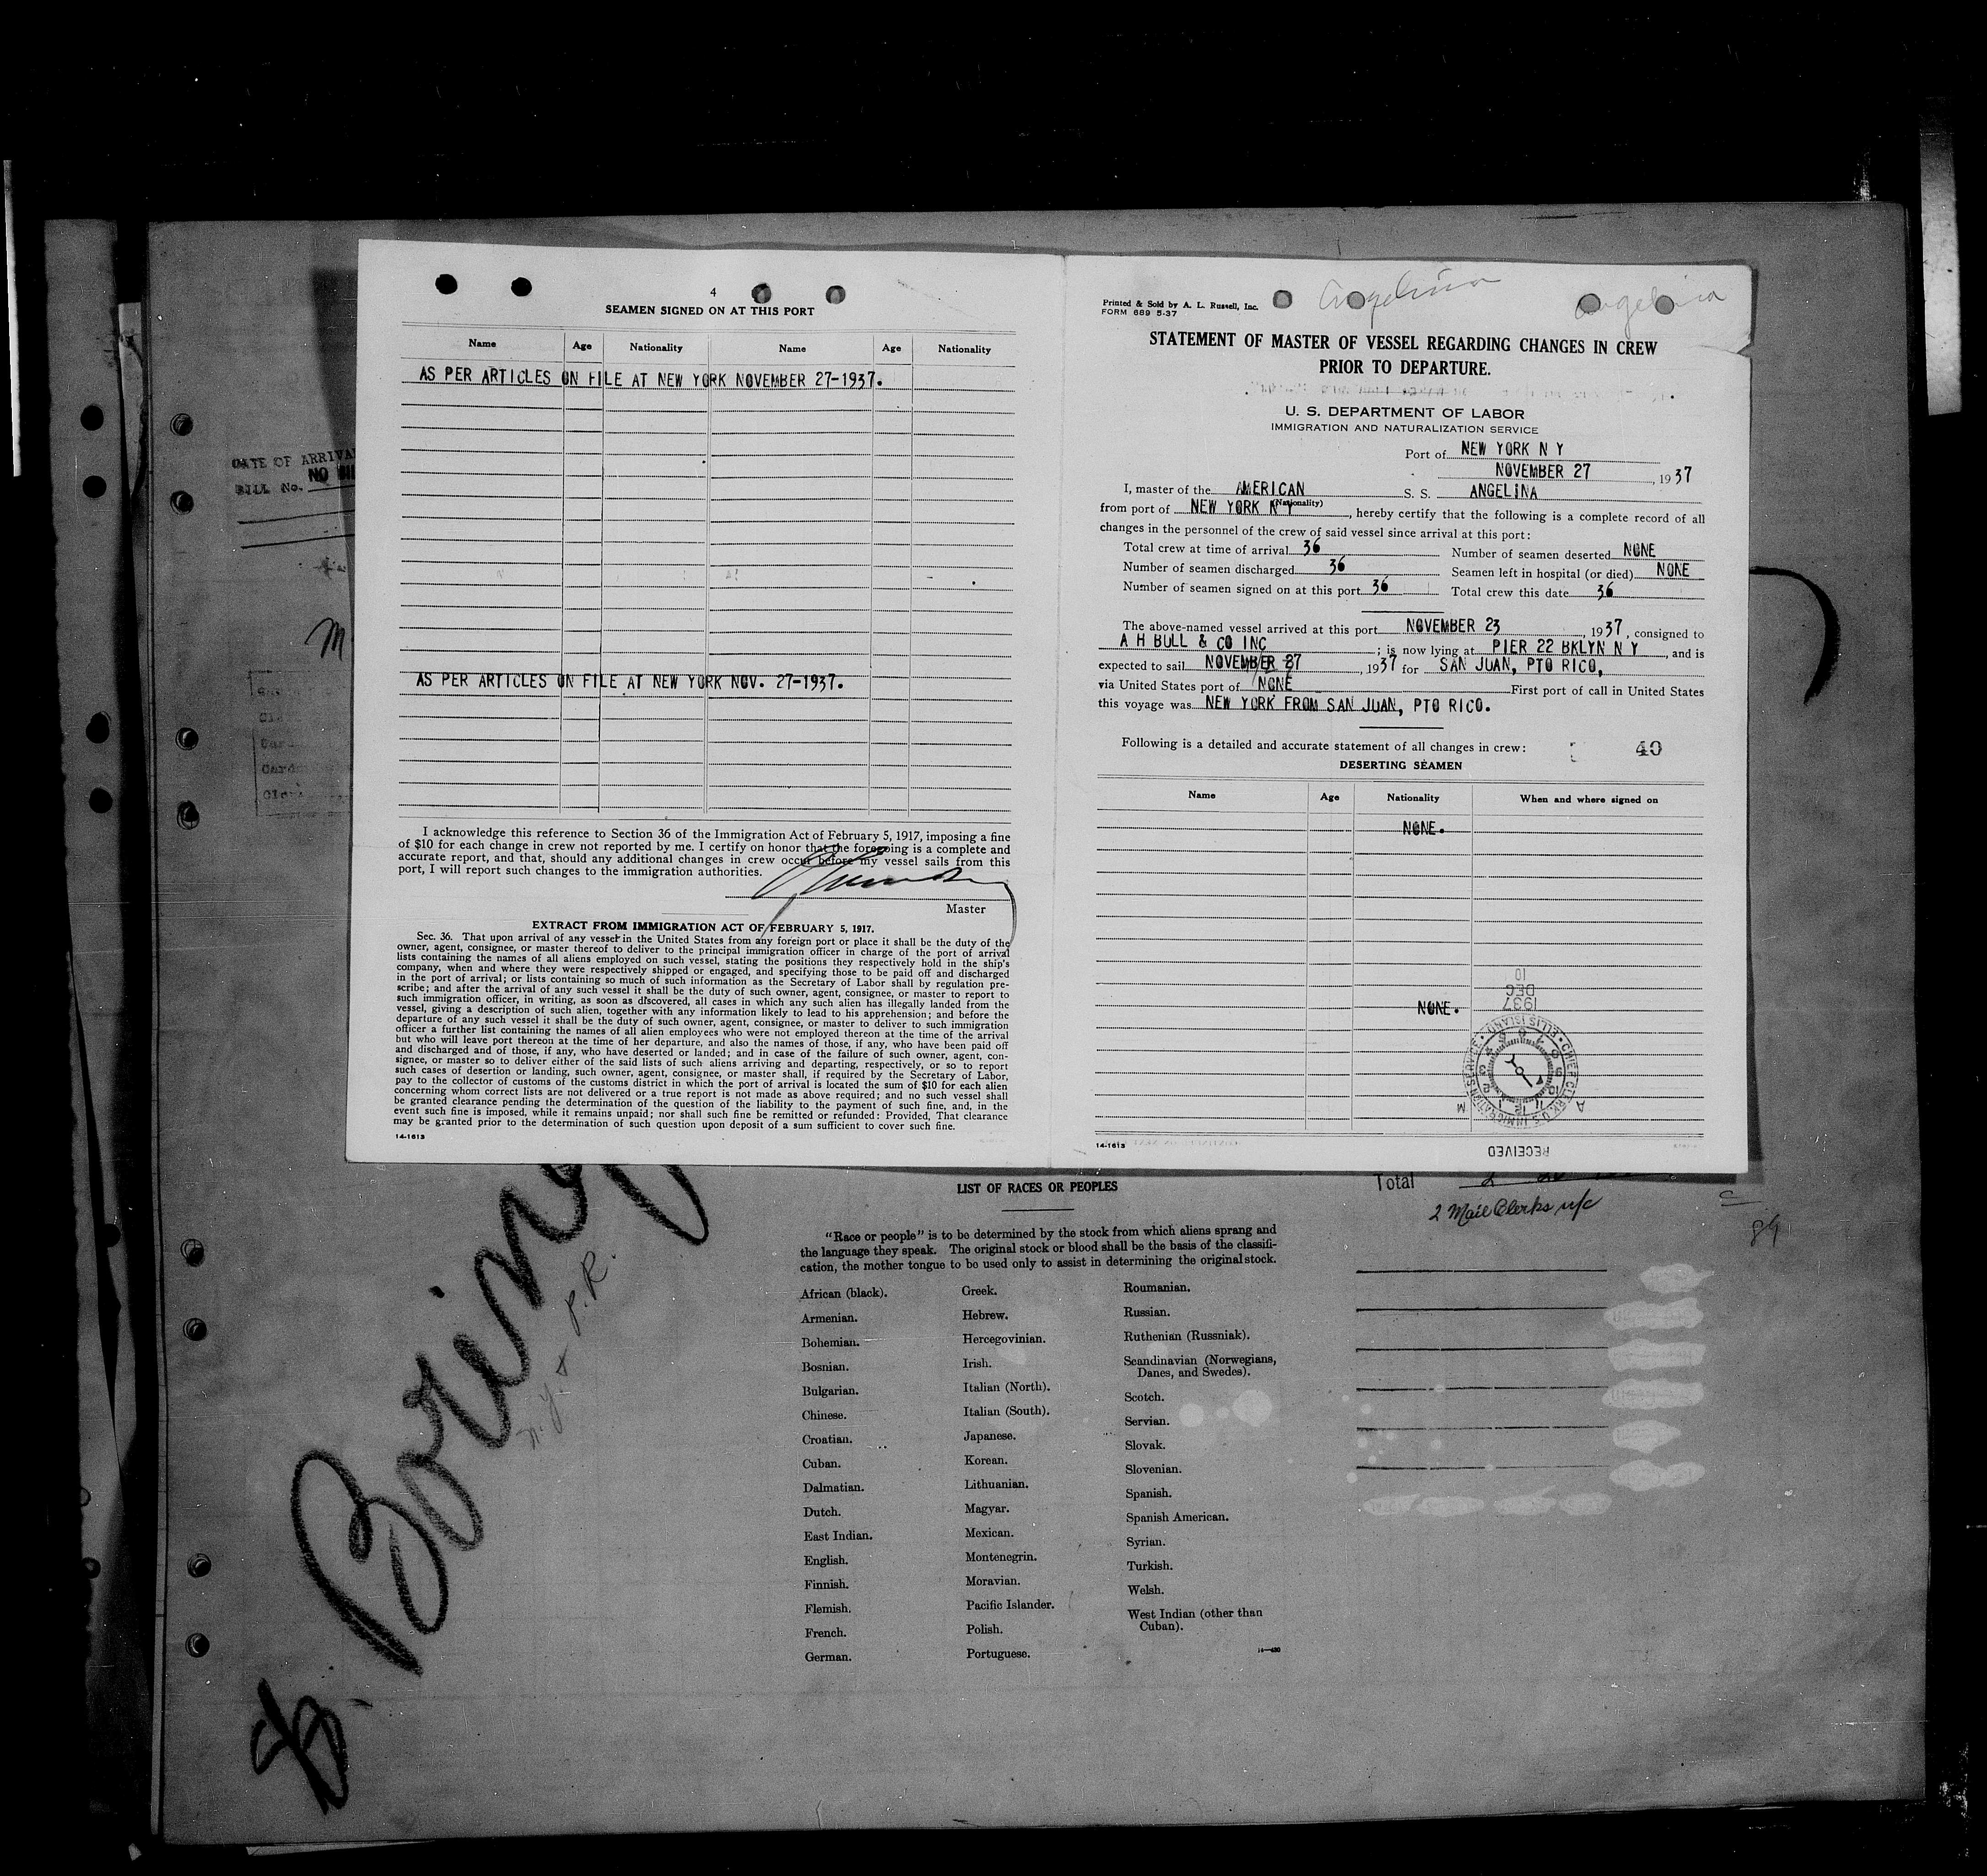 4
SEAMEN SIGNED ON AT THIS PORT
Name Age Nationality Name Age Nationality
AS PER ARTICLES ON FILE AT NEW YORK NOVEMBER 27-1937.
AS PER ARTICLES ON FILE AT NEW YORK NOV. 27-1937.
I acknowledge this reference to Section 36 of the Immigration Act of February 5, 1917, imposing a fine
of $10 for each change in crew not reported by me. I certify on honor that the foregoing is a complete and
accurate report, and that, should any additional changes in crew occur before my vessel sails from this
port, I will report such changes to the immigration authorities.
Master
EXTRACT FROM IMMIGRATION ACT OF FEBRUARY 5, 1917.
Sec. 36. That upon arrival of any vessel in the United States from any foreign port or place it shall be the duty of the
owner, agent, consignee, or master thereof to deliver to the principal immigration officer in charge of the port of arrival
lists containing the names of all aliens employed on such vessel, stating the positions they respectively hold in the ship's
company, when and where they were respectively shipped or engaged, and specifying those to be paid off and discharged
in the port of arrival; or lists containing so much of such information as the Secretary of Labor shall by regulation pre-
scribe; and after the arrival of any such vessel it shall be the duty of such owner, agent, consignee, or master to report to
such immigration officer, in writing, as soon as discovered, all cases in which any such alien has illegally landed from the
vessel, giving a description of such alien, together with any information likely to lead to his apprehension; and before the
departure of any such vessel it shall be the duty of such owner, agent, consignee, or master to deliver to such immigration
officer a further list containing the names of all alien employees who were not employed thereon at the time of the arrival
but who will leave port thereon at the time of her departure, and also the names of those, if any, who have been paid off
and discharged and of those, if any, who have deserted or landed; and in case of the failure of such owner, agent, con-
signee, or master so to deliver either of the said lists of such aliens arriving and departing, respectively, or so to report
such cases of desertion or landing, such owner, agent, consignee, or master shall, if required by the Secretary of Labor,
pay to the collector of customs of the customs district in which the port of arrival is located the sum of $10 for each alien
concerning whom correct lists are not delivered or a true report is not made as above required; and no such vessel shall
be granted clearance pending the determination of the question of the liability to the payment of such fine, and, in the
event such fine is imposed, while it remains unpaid; nor shall such fine be remitted or refunded: Provided, That clearance
may be granted prior to the determination of such question upon deposit of a sum sufficient to cover such fine.
14-1613
Printed & Sold by A. L. Russell, Inc.
FORM 689 5-37
Angelina
Angelina
STATEMENT OF MASTER OF VESSEL REGARDING CHANGES IN CREW
PRIOR TO DEPARTURE.
U. S. DEPARTMENT OF LABOR
IMMIGRATION AND NATURALIZATION SERVICE
Port of NEW YORK N Y
NOVEMBER 27, 1937
I, master of the AMERICAN S. S. ANGELINA
(Nationality)
from port of NEW YORK N Y, hereby certify that the following is a complete record of all
changes in the personnel of the crew of said vessel since arrival at this port:
Total crew at time of arrival 36 Number of seamen deserted NONE
Number of seamen discharged 36 Seamen left in hospital (or died) NONE
Number of seamen signed on at this port 36 Total crew this date 36
The above-named vessel arrived at this port NOVEMBER 23, 1937, consigned to
A H BULL & CO INC; is now lying at PIER 22 BKLYN N Y, and is
expected to sail NOVEMBER 27, 1937 for SAN JUAN, PTO RICO,
via United States port of NONE First port of call in United States
this voyage was NEW YORK FROM SAN JUAN, PTO RICO.
Following is a detailed and accurate statement of all changes in crew: 40
DESERTING SEAMEN
Name Age Nationality When and where signed on
NONE.
NONE.
10
DEC
1937
CHIEF CLERK U.S. IMMIGRATION SERVICE • ELLIS ISLAND
A M
RECEIVED
14-1613
DATE OF ARRIVAL
BILL No. NO
Total
2 Mail Clerks n/c
84
LIST OF RACES OR PEOPLES
"Race or people" is to be determined by the stock from which aliens sprang and
the language they speak. The original stock or blood shall be the basis of the classifi-
cation, the mother tongue to be used only to assist in determining the original stock.
African (black).
Armenian.
Bohemian.
Bosnian.
Bulgarian.
Chinese.
Croatian.
Cuban.
Dalmatian.
Dutch.
East Indian.
English.
Finnish.
Flemish.
French.
German.
Greek.
Hebrew.
Hercegovinian.
Irish.
Italian (North).
Italian (South).
Japanese.
Korean.
Lithuanian.
Magyar.
Mexican.
Montenegrin.
Moravian.
Pacific Islander.
Polish.
Portuguese.
Roumanian.
Russian.
Ruthenian (Russniak).
Scandinavian (Norwegians,
Danes, and Swedes).
Scotch.
Servian.
Slovak.
Slovenian.
Spanish.
Spanish American.
Syrian.
Turkish.
Welsh.
West Indian (other than
Cuban).
N.Y. & P.R.